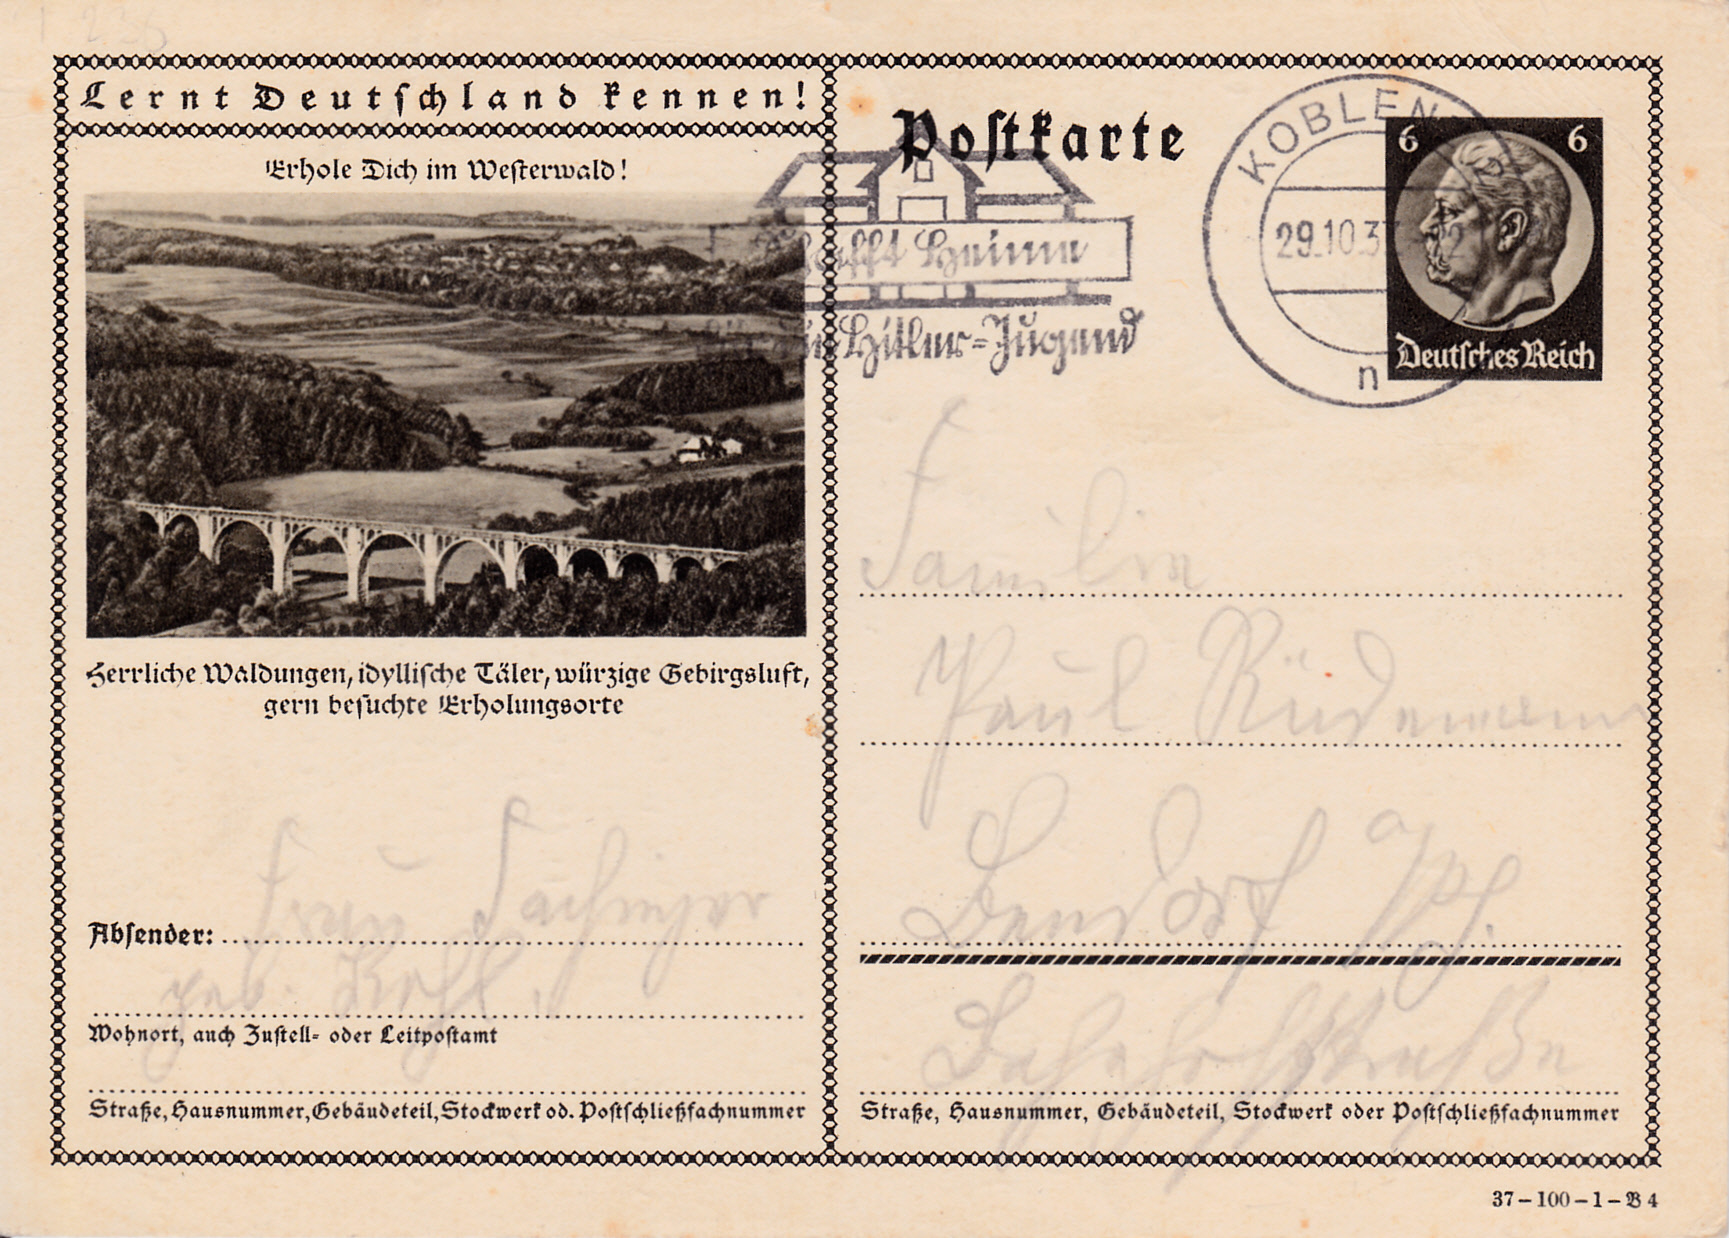 Lernt Deutschland kennen!
Erhole Dich im Westerwald!
Herrliche Waldungen, idyllische Täler, würzige Gebirgsluft,
gern besuchte Erholungsorte
Absender: Frau
geb.
Wohnort, auch Zustell- oder Leitpostamt
Straße, Hausnummer, Gebäudeteil, Stockwerk od. Postschließfachnummer
Postkarte
Schafft Heime
für Hitler-Jugend
KOBLENZ
29.10.37
n
6 6
Deutsches Reich
Familie
Paul Rüdemann
Bendorf a/Rh.
Straße, Hausnummer, Gebäudeteil, Stockwerk oder Postschließfachnummer
37-100-1-B 4